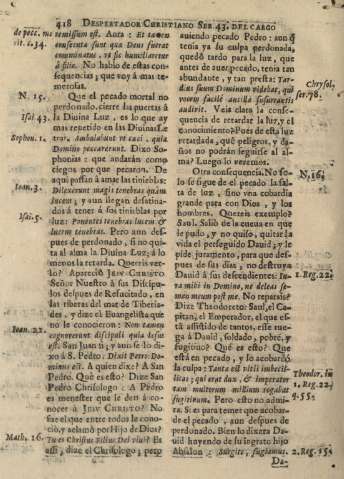 418 DESPERTADOR CHRISTIANO SER 43. DEL CARGO
de pecc. me remissum est. Anta: Et tamen
rit. c. 34. consecuta sunt qua Deus fuerat
comminatus, vt sic humiliaretur
à filio. No hablo de estas con-
sequencias; que voy à mas te-
merosas.
N. 15. Que el pecado mortal no
perdonado, cierre las puertas à
Isai 43. la Divina Luz, es lo que ay
mas repetido en las Divinas Le
Sophon. 1. tras. Ambulabunt vt cæci, quia
Domino peccaverunt. Dixo So-
phonias: que andaràn como
ciegos por que pecaron. De
aqui passan à amar las tinieblas:
Ioan. 3. Dilexerunt magis tenebras quàm
lucem; y aun llegan desatina-
dos à tener à sus tinieblas por
Isai. 5. luz: Ponentes tenebras lucem, &
lucem tenebras. Pero aun des-
pues de perdonado, si no qui-
ta al alma la Divina Luz, à lo
menos la retarda. Quereis ver-
lo? Apareciò JESV CHRISTO
Señor Nuestro à sus Discipu-
los despues de Resucitado, en
las riberas del mar de Tiberia-
des, y dize el Evangelista que
Ioan. 21. no le conocieron: Non tamen
cognoverunt discipuli quia Iesus
est. San Juan si, y aun se lo di-
xo à S. Pedro: Dixit Petro: Do-
minus est. A quien dize? A San
Pedro. Què es esto? Dize San
Pedro Chrisologo: A Pedro
es menester que le den à co-
nocer à JESV CHRISTO? No
fue el que entre todos le cono-
ciò, y aclamò por Hijo de Dios?
Math. 16. Tu es Christus Filius Dei vivi? Es
assi, dize el Chrisologo; pero
auiendo pecado Pedro: aun q̃
tenia ya su culpa perdonada,
quedò tardo para la luz, que
antes de auer pecado, tenia tan
abundante, y tan presta: Tar-
Chrysol. dus suum Dominum videbat, qui
ser. 78. vocem facilè ancilla susurrantis
audivit. Veis clara la conse-
quencia de retardar la luz, y el
conocimiento? Pues de esta luz
retardada, què peligros, y da-
ños no podràn seguirse al al-
ma? Luego lo veremos.
N. 16. Otra consequencia. No so-
lo se sigue de el pecado la fal-
ta de luz, sino vna cobardia
grande para con Dios, y los
hombres. Quereis exemplo?
Saul. Saliò de la cueva en que
le pudo, y no quiso, quitar la
vida el perseguido Dauid; y le
pide juramento, para que des-
pues de sus dias, no destruya
1. Reg. 22. Dauid à sus descendientes: Iu-
ra mihi in Domino, ne deleas se-
men meum post me. No reparais?
Dize Theodoreto: Saul, el Ca-
pitan, el Emperador, el que es-
tà assistido de tantos, esse rue-
ga à Dauid, soldado, pobre, y
fugitivo? Què es esto? Que
està en pecado, y lo acobardò
la culpa: Tanta est vitij imbecil-
Theodor. in litas; qui erat dux, & imperator
1. Reg. 22. tam multorum millium rogabat
q. 55. fugitivum. Pero esto no admi-
ra. Si es para temer que acobar-
de el pecado, aun despues de
perdonado. Bien lo dixera Da-
uid huyendo de su ingrato hijo
2. Reg. 15. Absalon: Surgite, fugiamus.
Da-